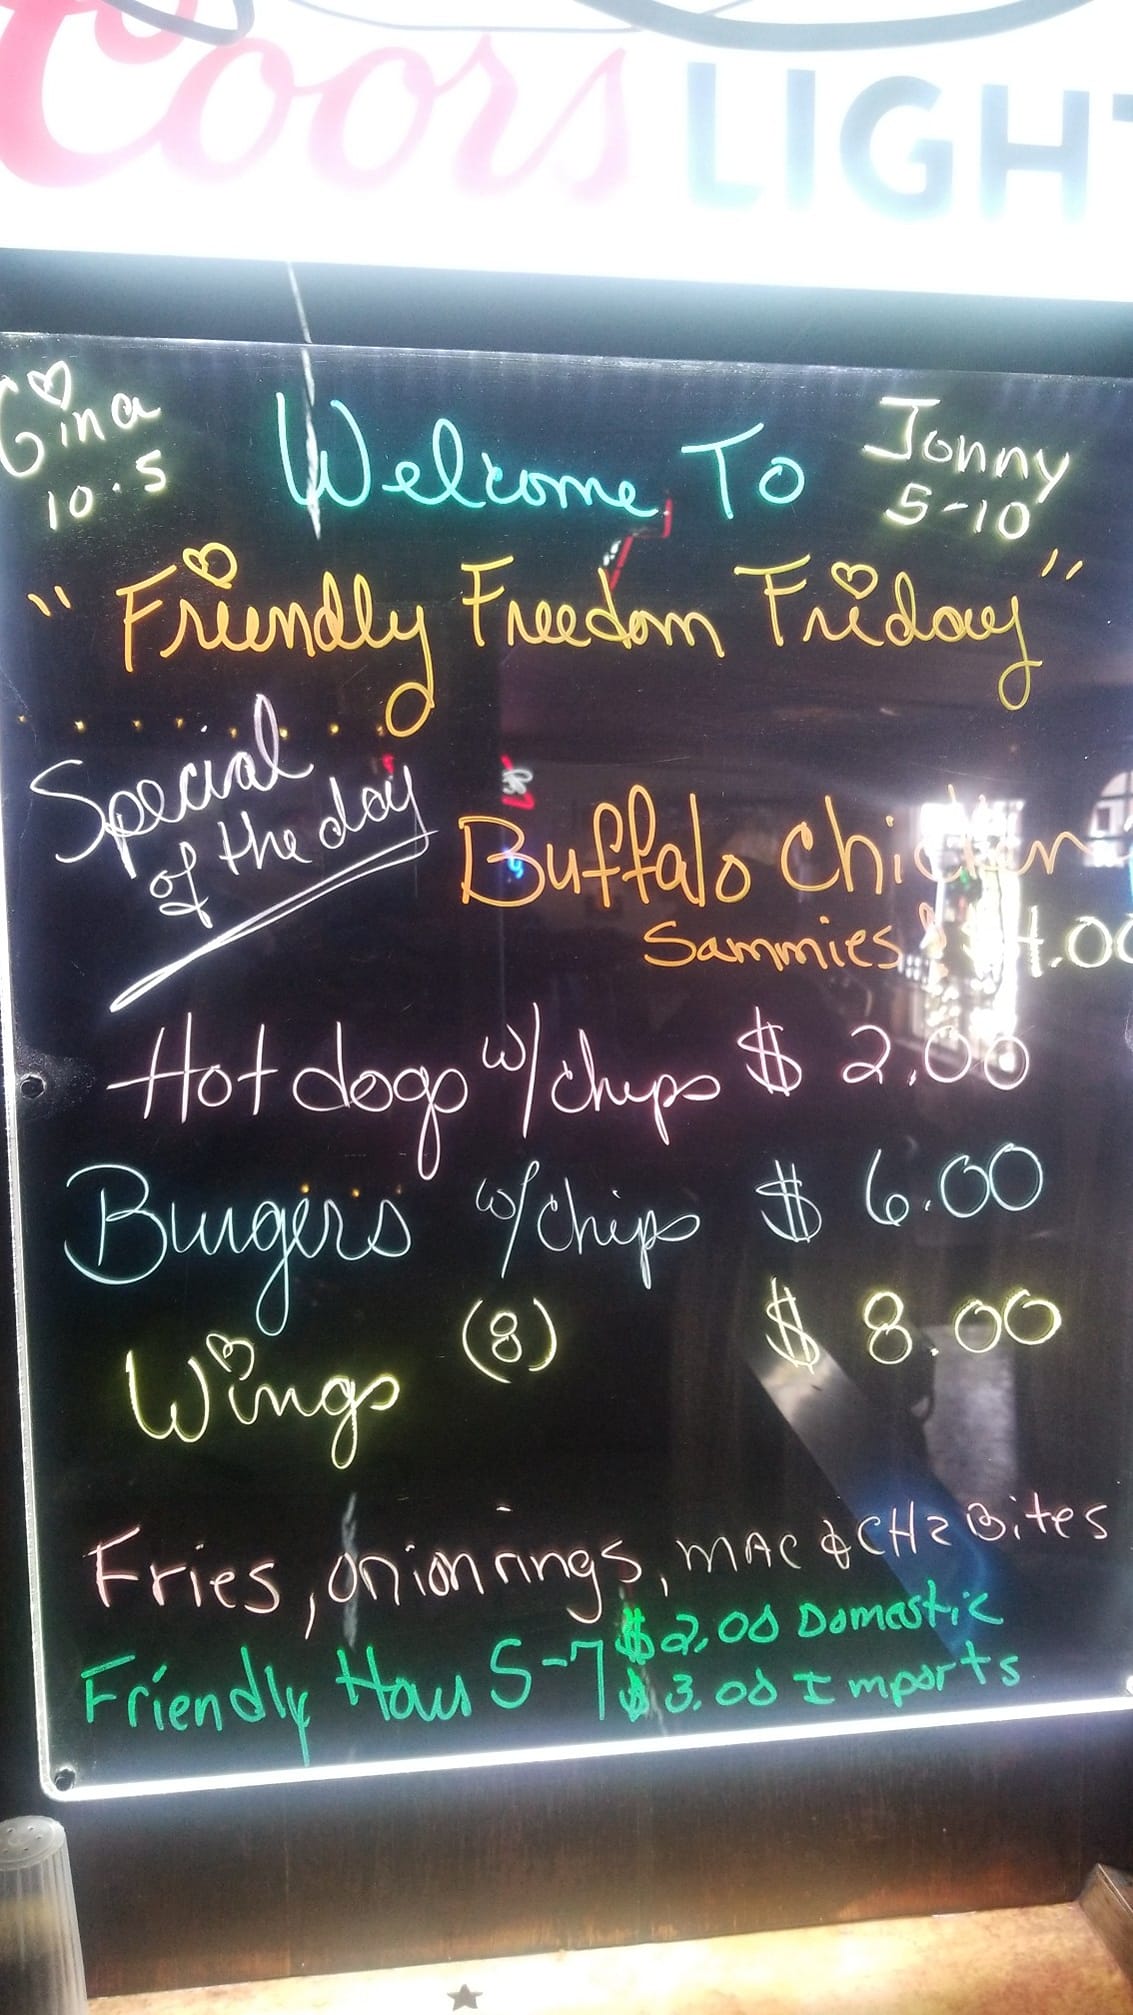 Coors LIGHT
Gina
10-5
Welcome To
Jonny
5-10
"Friendly Freedom Friday"
Special
of the day
Buffalo Chicken
Sammies $4.00
Hotdogs w/chips $ 2.00
Burgers w/chips $ 6.00
Wings (8) $ 8.00
Fries, onion rings, MAC & CHZ Bites
Friendly Hour 5-7 $2.00 Domestic
$3.00 Imports